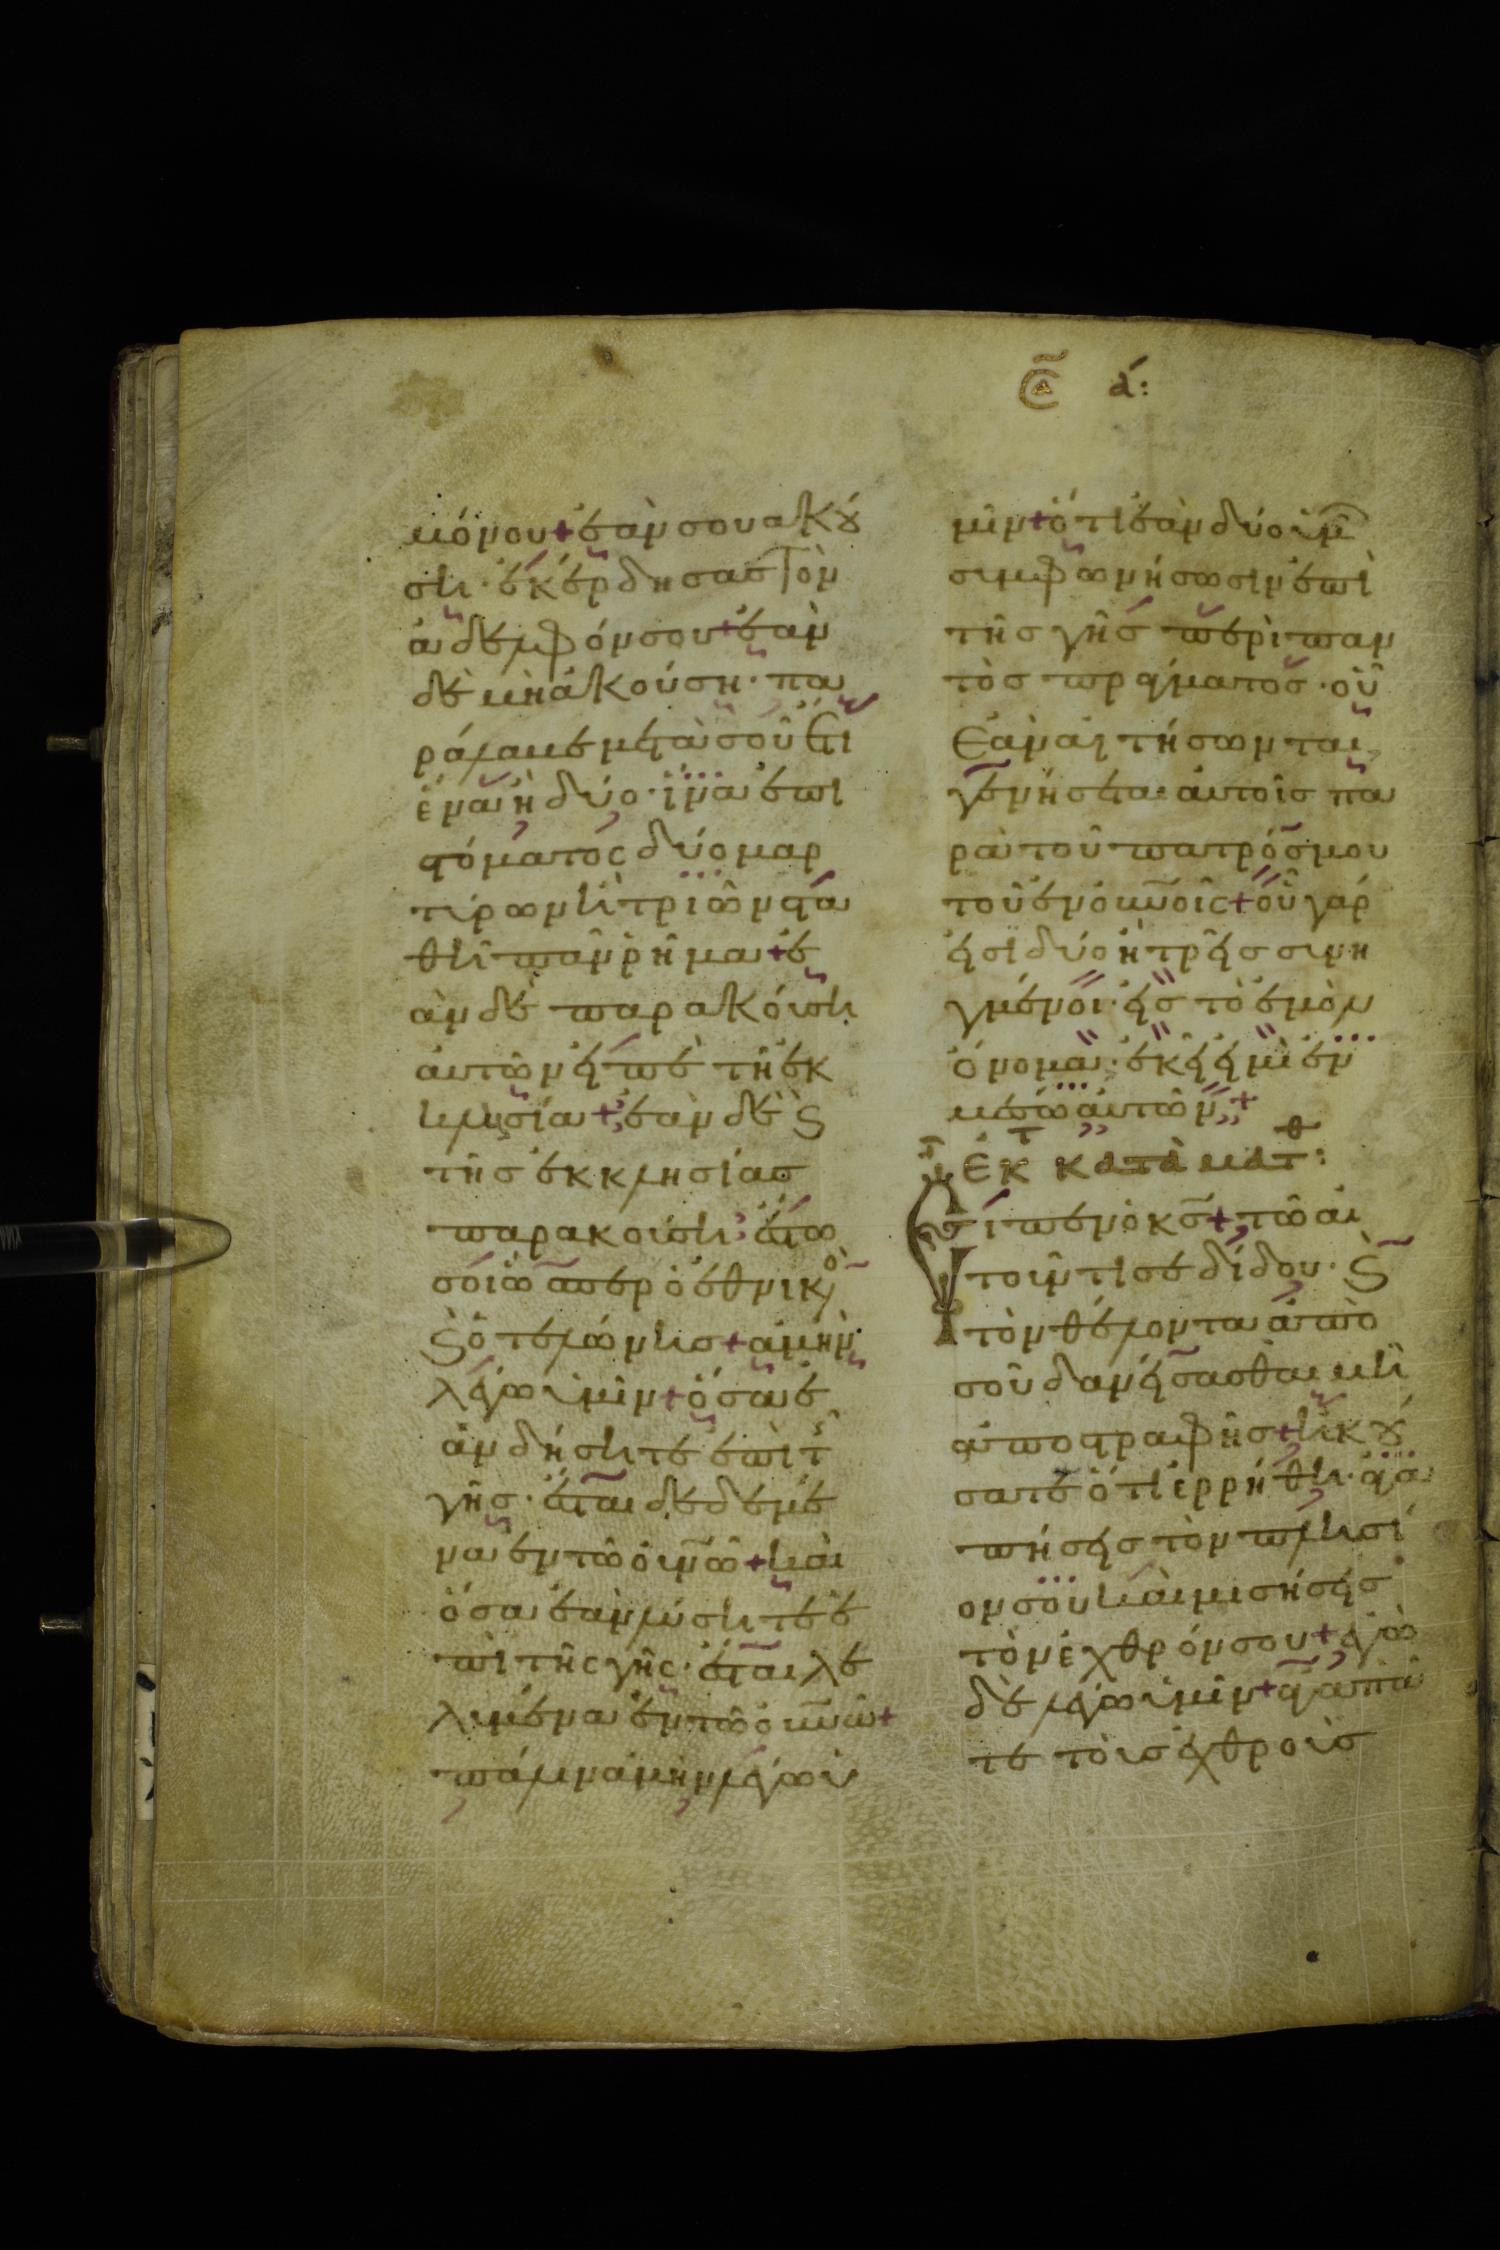 ε̅ ά:
μόνου + ἐάν σου ἀκού
σῃ · ἐκέρδησας τὸν
ἀδελφόν σου + ἐὰν
δὲ μὴ ἀκούση · πα
ράλαβε μετὰ σοῦ ἔτι
ἕνα ἢ δύο · ἵνα ἐπὶ
στόματος δύο μαρ
τύρων ἢ τριῶν στα
θῆ πᾶν ῥῆμα + ἐ
ὰν δὲ παρακούση
αὐτῶν εἰπὲ τῆ ἐκ
κλησία + ἐὰν δὲ ϗ
τῆς ἐκκλησίας
παρακούση · ἔστω
σοι ὡσπερ ὁ ἐθνικὸ
ϗ ὁ τελώνης + ἀμὴν
λέγω ὑμῖν + ὅσα ἐ
ὰν δήσητε ἐπὶ τ
γῆς · ἔσται δεδεμέ
να ἐν τῶ οὐνῶ + καὶ
ὅσα ἐὰν λύσητε ἐ
πὶ τῆς γῆς · ἔσται λε
λυμένα ἐν τῶ οὐνῶ +
πάλιν ἀμὴν λέγω ὑ
μῖν + ὅτι ἐὰν δύο ὑμ
συμφωνήσωσιν ἐπὶ
τῆς γῆς περὶ παν
τὸς πράγματος · οὗ
ἐὰν αἰτήσωνται
γενήσεται αὐτοῖς πα
ρὰ τοῦ πατρός μου
τοῦ ἐν οὐνοῖς + οὗ γάρ
εἰσι δύο ἢ τρεῖς συνη
γμένοι · εἰς τὸ ἐμὸν
ὄνομα · ἐκεῖ εἰμὶ ἐν
μέσω αὐτῶν +
ἐκ τ κατὰ ματθ :
Εἶπεν ὁ κς + τῶ αἰ
τοῦντι σε δίδου · ϗ
τὸν θέλοντα ἀπὸ
σοῦ δανείσασθαι μὴ
ἀποστραφῆς + ἠκού
σατε ὅτι ἐρρήθη · ἀγα
πήσεις τὸν πλησί
ον σου καὶ μισήσεις
τὸν ἐχθρόν σου + ἐγὼ
δὲ λέγω ὑμῖν + ἀγαπᾶ
τε τοὺς ἐχθροὺς